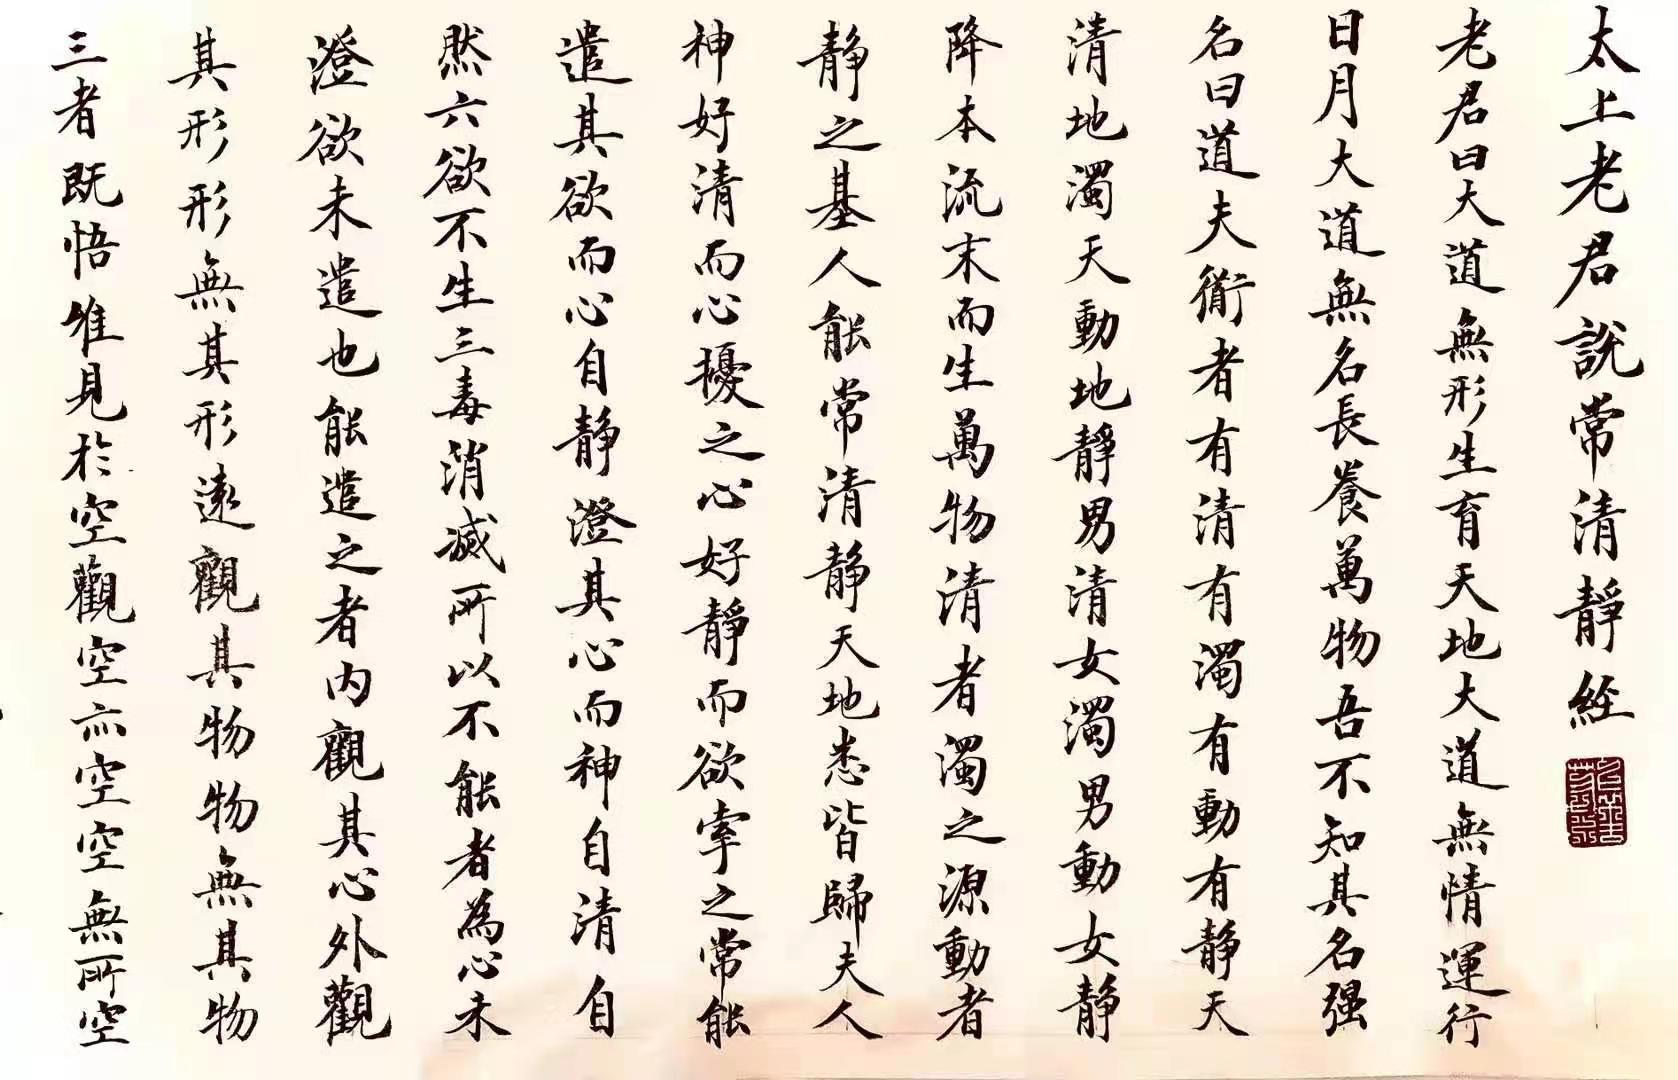 太上老君說常清靜經
老君曰大道無形生育天地大道無情運行
日月大道無名長養萬物吾不知其名强
名曰道夫衜者有清有濁有動有静天
清地濁天動地靜男清女濁男動女静
降本流末而生萬物清者濁之源動者
静之基人能常清静天地悉皆歸夫人
神好清而心擾之心好靜而欲牽之常能
遣其欲而心自静澄其心而神自清自
然六欲不生三毒消滅所以不能者為心未
澄欲未遣也能遣之者内觀其心外觀
其形形無其形遠觀其物物無其物
三者既悟唯見於空觀空亦空空無所空